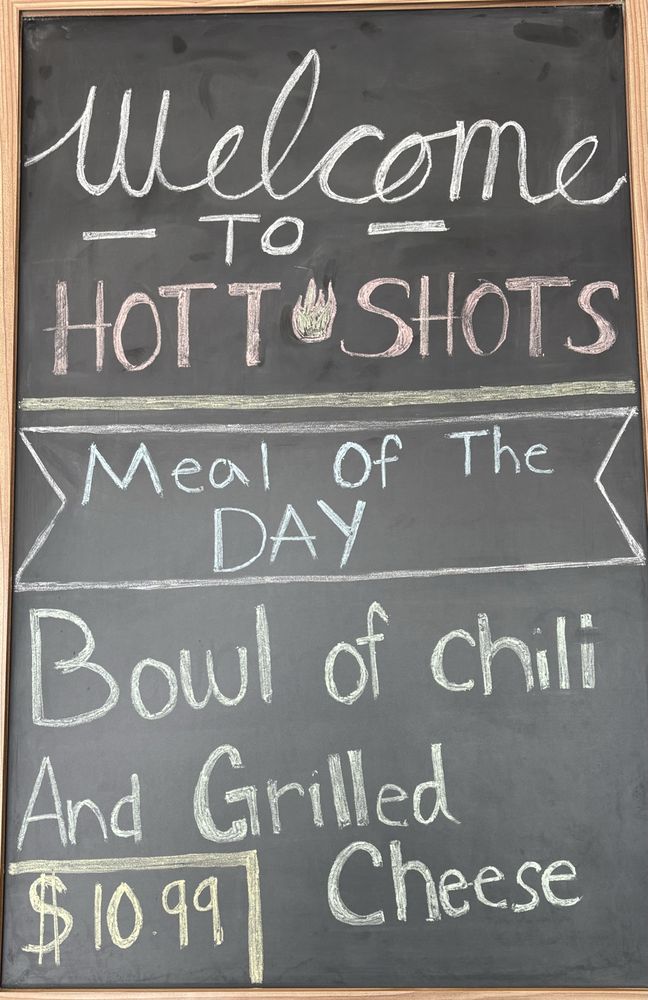 Welcome
- TO -
HOTT SHOTS
Meal Of The
DAY
Bowl of chili
And Grilled
Cheese
$10.99